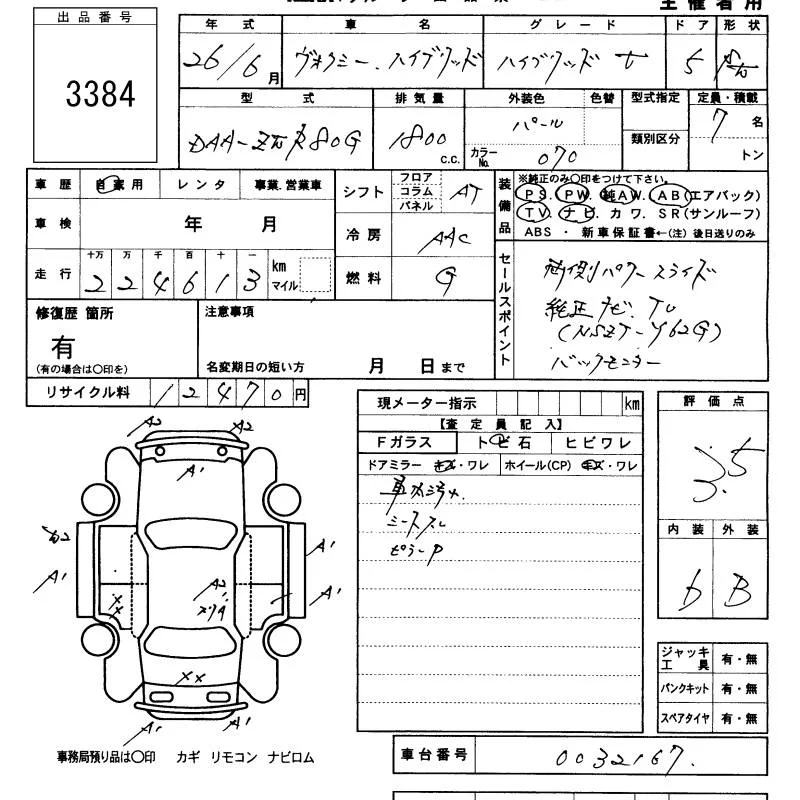 主催者用
出品番号
3384
年式 車名 グレード ドア 形状
26/6月 ヴォクシー.ハイブリッド ハイブリッド 5
型式 排気量 外装色 色替 型式指定 定員・積載
DAA- 80G 1800 C.C. パール 類別区分 7名
カラーNo. 070 トン
車歴 自家用 レンタ 事業.営業車
車検 年 月
走行 十万 万 千 百 十 一
224613 km マイル
シフト フロア コラム パネル AT
冷房 AAC
燃料 G
装備品 ※純正のみ〇印をつけて下さい。
PS. PW. 純AW. AB(エアバック)
TV. ナビ. カワ. SR(サンルーフ)
ABS ・ 新車保証書←(注) 後日送りのみ
セールスポイント
両側パワースライド
純正ナビ.TV
(NSZT-Y62G)
バックモニター
修復歴 箇所
有
(有の場合は〇印を)
注意事項
名変期日の短い方 月 日まで
リサイクル料 12470円
現メーター指示 km
【査定員記入】
Fガラス トビ石 ヒビワレ
ドアミラー キズ・ワレ ホイール(CP) キズ・ワレ
車内汚れ
シートスレ
ピラーP
評価点
3.5
内装 外装
b B
A2 A2
A1
A2 A1
A1 A1
A2
XX
XX
A1 A1
ジャッキ工具 有・無
パンクキット 有・無
スペアタイヤ 有・無
事務局預り品は〇印 カギ リモコン ナビロム
車台番号 0032167.